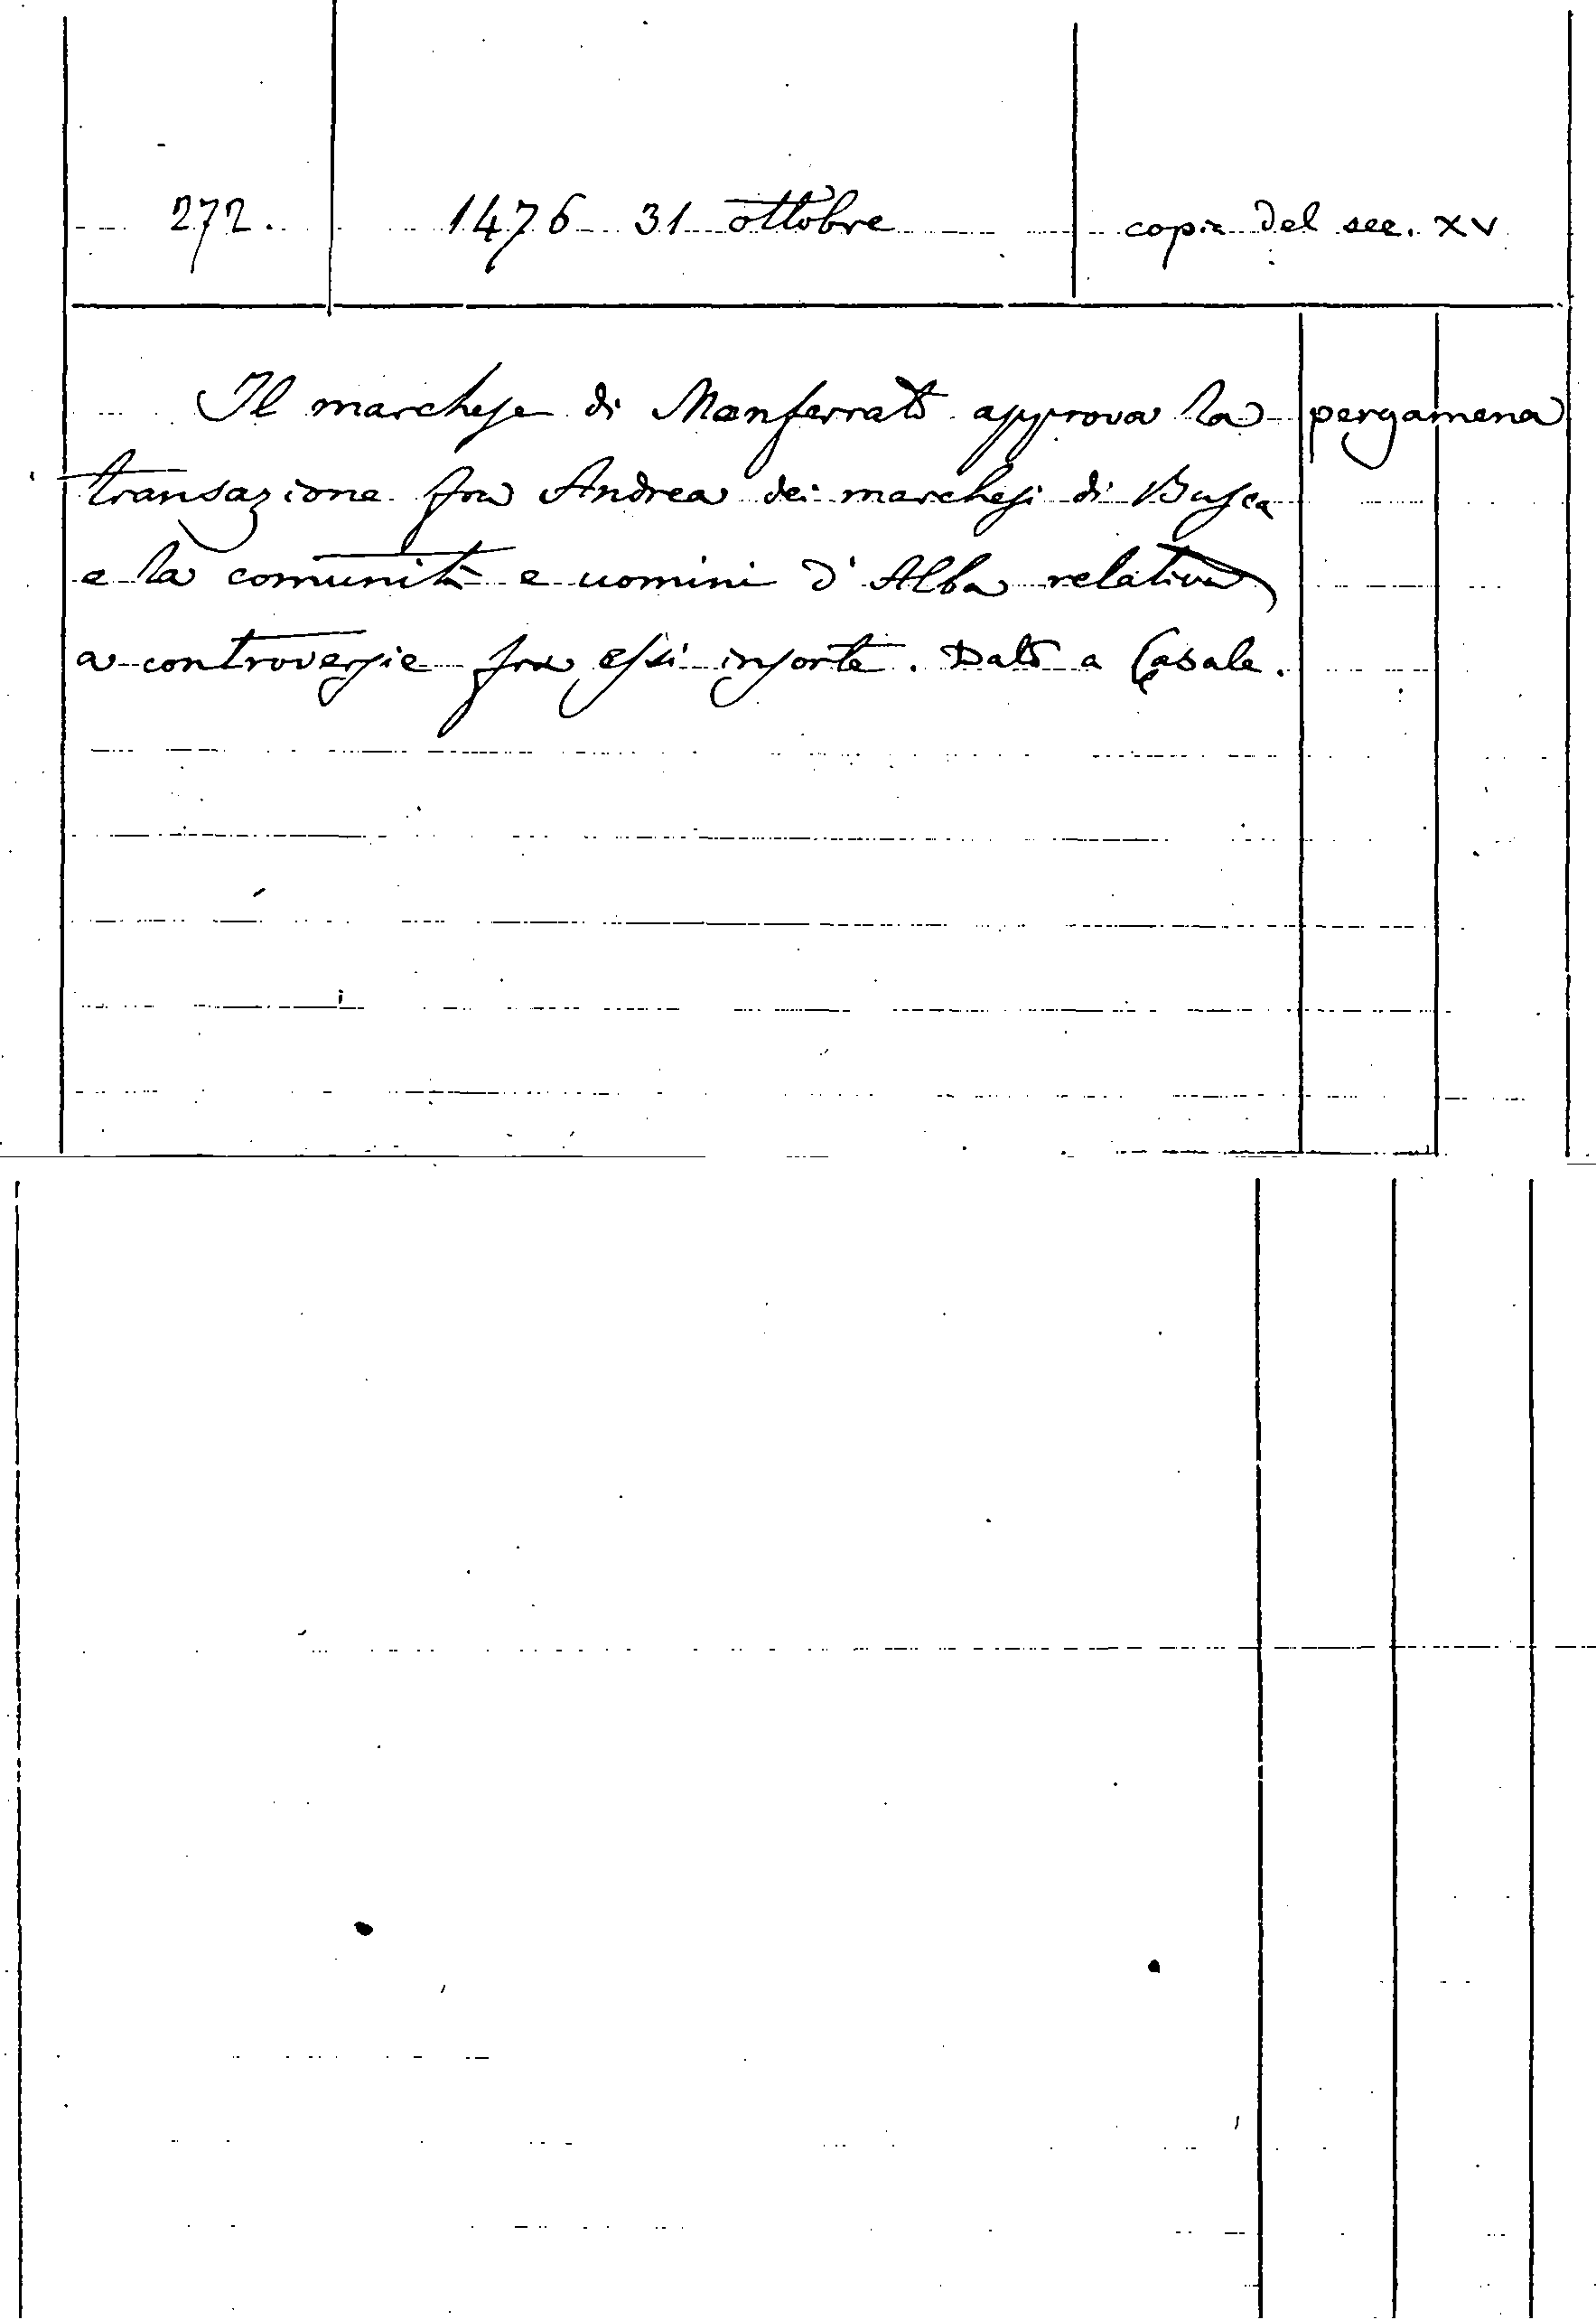 272. 1476 31 ottobre copia del sec. XV
Il marchese di Monferrato approva la pergamena
transazione fra Andrea dei marchesi di Busca
e la comunità e uomini d'Alba relativa
a controversie fra essi insorte. Dato a Casale.